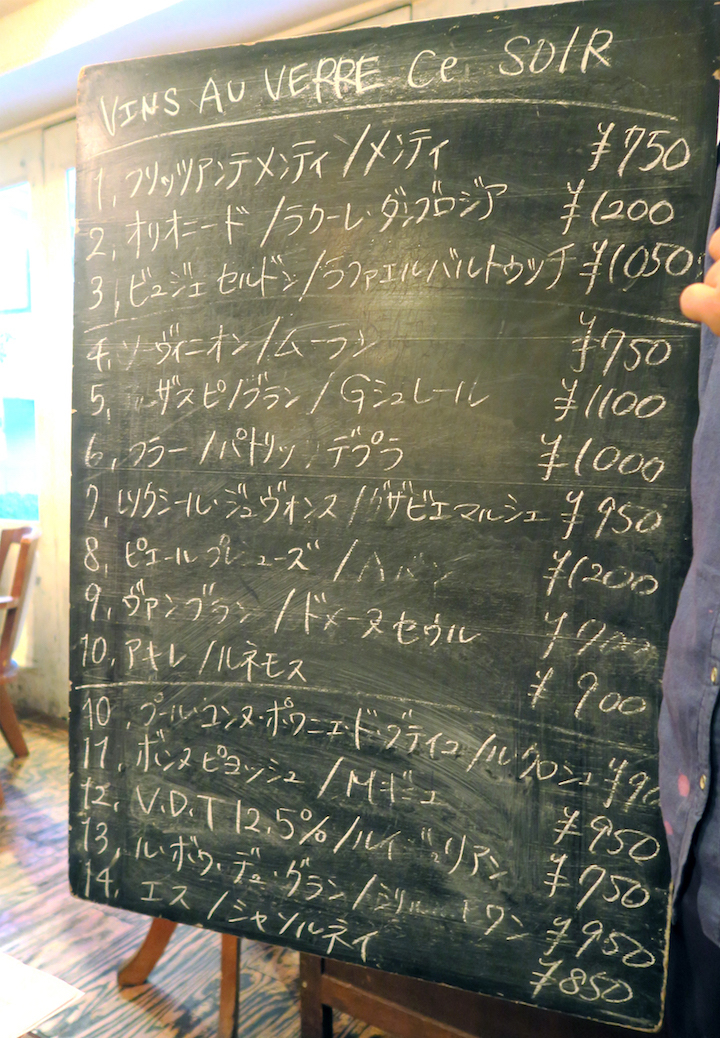 VINS AU VERRE Ce SOIR
1, フリッツアンテ メンティ/メンティ ¥750
2, オリオニード/ラクーレ・ダンブロジア ¥1200
3, ビュジェ セルドン/ラファエルバルトゥッチ ¥1050
4, ソーヴィニオン/ムーラン ¥750
5, ザスピノブラン/Gシュレール ¥1100
6, フラー/パトリッ デプラ ¥1000
7, リクシール・ジュヴォンス/グザビエ マルシェ ¥950
8, ピエール プレューズ/ ¥1200
9, ヴァンブラン/ドメーヌ セウル
10, アキレ/ルネモス ¥900
10, プール・コンヌ・ポワニェ・ド・ブティユ/ルクロシュ
11, ボンヌ ピヨッシュ/Mギニエ ¥950
12, V.D.T 12.5%/ルイ・ジュリアン ¥750
13, ル・ボワ・デュ・グラン/ ¥950
14, エス/シャソルネイ ¥850